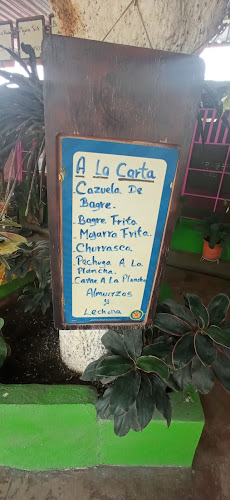 A La Carta
Cazuela De
Bagre.
Bagre Frito.
Mojarra Frita.
Churrasco.
Pechuga A La
Plancha.
Carne A La Plancha
Almuerzos
y
Lechona